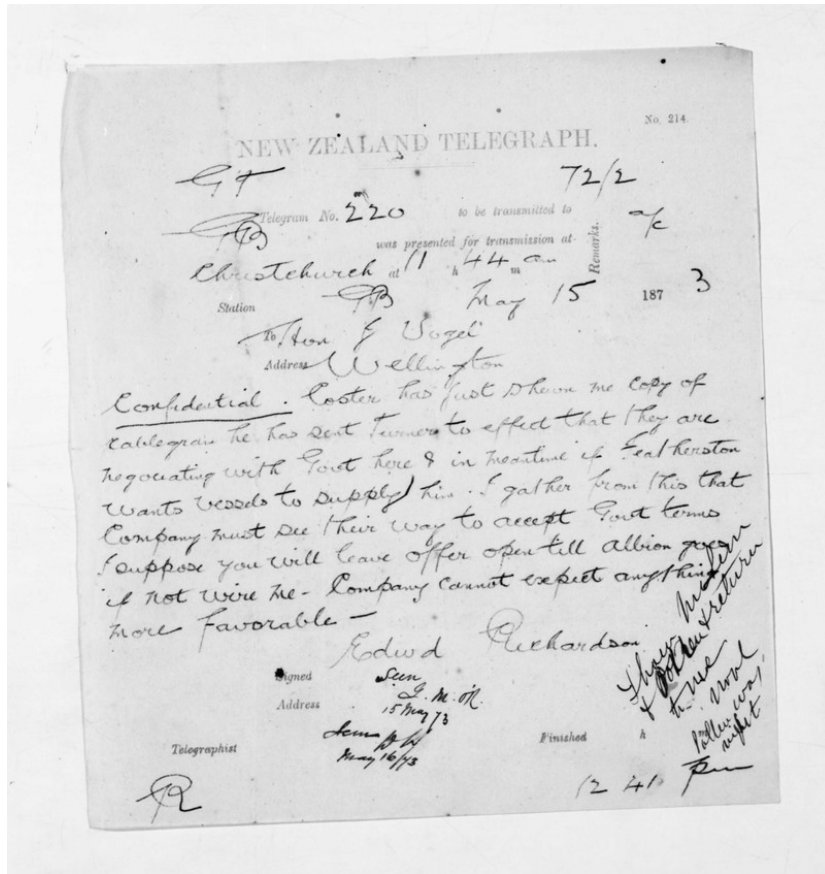 No. 214.
NEW ZEALAND TELEGRAPH.
GT 72/2
Telegram No. 220 to be transmitted to
was presented for transmission at
Remarks. a/c
Christchurch at 11 h 44 m am
Station May 15 187 3
To Hon J Vogel
Address Wellington
Confidential. Coster has just shewn me copy of
cablegram he has sent Turner to effect that they are
negociating with Govt here & in meantime if Featherston
wants vessels to supply him. I gather from this that
Company must see their way to accept Govt terms
I suppose you will leave offer open till Albion goes
if not wire me - Company cannot expect anything
more favorable -
Edwd Richardson
Signed Seen
Address G. M. OR.
15 May 73
Telegraphist
May 16/73
Finished h
12 41 pm
Show McLean
& return
to me